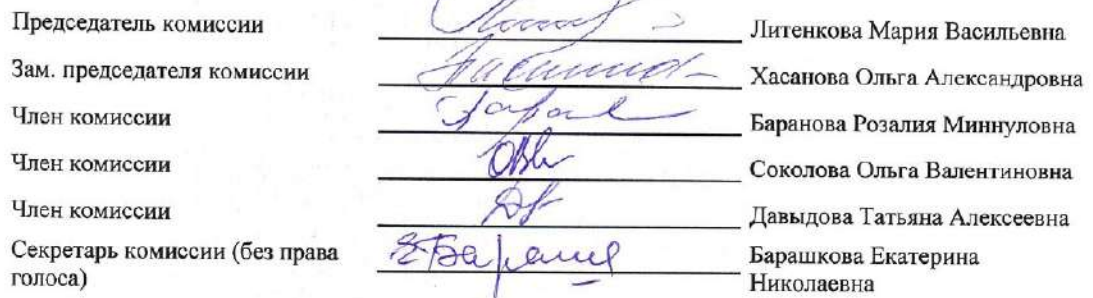 Председатель комиссии Литенкова Мария Васильевна
Зам. председателя комиссии Хасанова Ольга Александровна
Член комиссии Баранова Розалия Миннуловна
Член комиссии Соколова Ольга Валентиновна
Член комиссии Давыдова Татьяна Алексеевна
Секретарь комиссии (без права Барашкова Екатерина
голоса) Николаевна